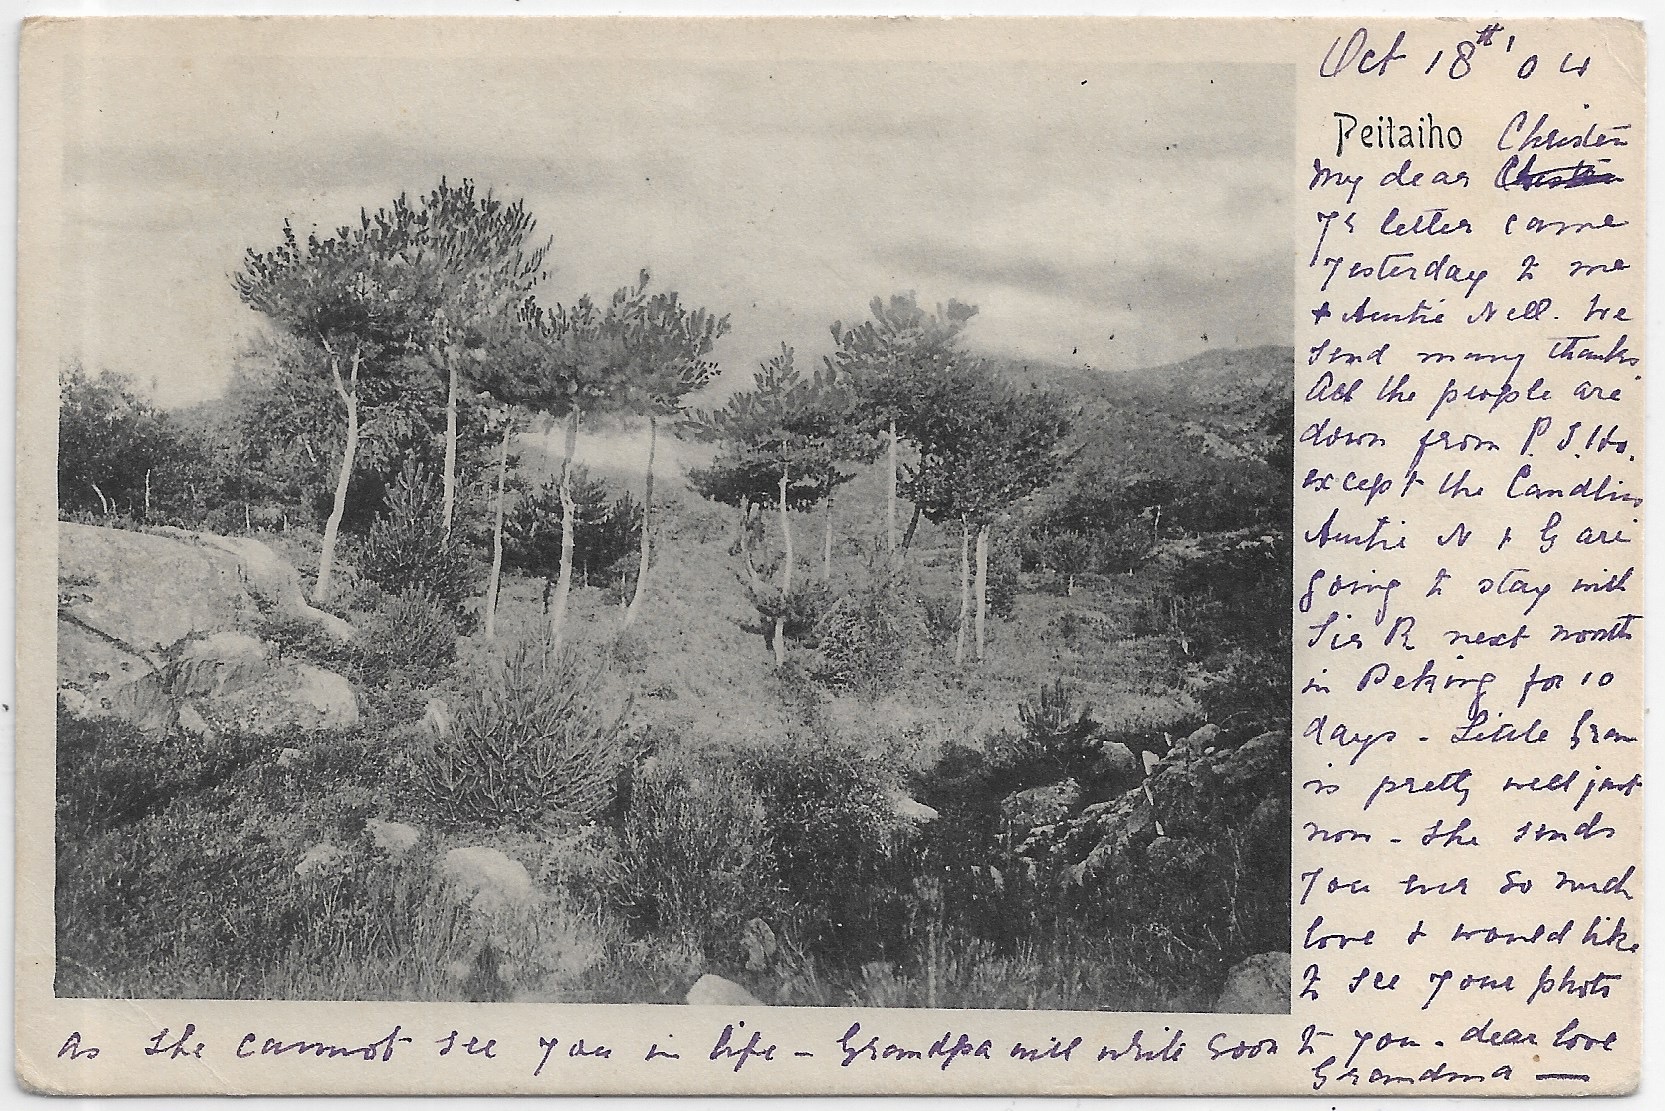 Oct 18th '04
Peitaiho Christen
My dear
Yr letter came
yesterday to me
& Auntie Nell. We
send many thanks.
All the people are
down from P.T.Ho.
except the Candlins
Auntie N & G are
going to stay with
Sir R next month
in Peking for 10
days - Little Gran
is pretty well just
now - She sends
you ever so much
love & would like
to see your photo
as she cannot see you in life - Grandpa will write soon to you. dear love
Grandma —